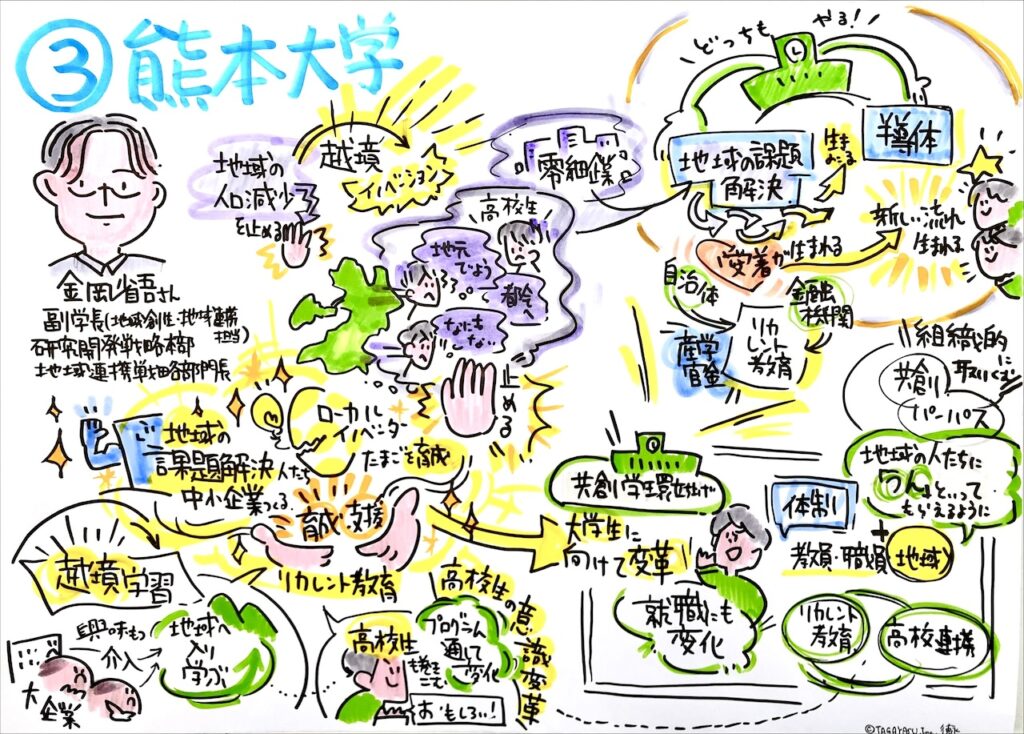 ③熊本大学
金岡省吾さん
副学長(地域創生・地域連携担当)
研究開発戦略本部
地域連携戦略部門長
地域の
人口減少
を止める
越境
イノベーション
零細企業
高校生
地元
でよう
都会へ
なにも
ない
止める
どっちも
やる!
地域の課題
解決
半導体
愛着が生まれる
新しい流れ
生まれる
自治体
金融
機関
産学
官金
リカ
レント
教育
組織的に
共創
パーパス
地域の
課題解決人たち
中小企業つくる
ローカル
イノベーター
たまごを育成
育成・支援
リカレント教育
越境学習
興味も
介入
大企業
地域へ
入り
学ぶ
高校生の意識変革
高校生
プログラム
通して
変化
おもしろい!
共創学環立ち上げ
大学生に
向けて変革
就職にも
変化
体制
教員・職員+地域
地域の人たちに
「うん」といって
もらえるように
リカレント
教育
高校連携